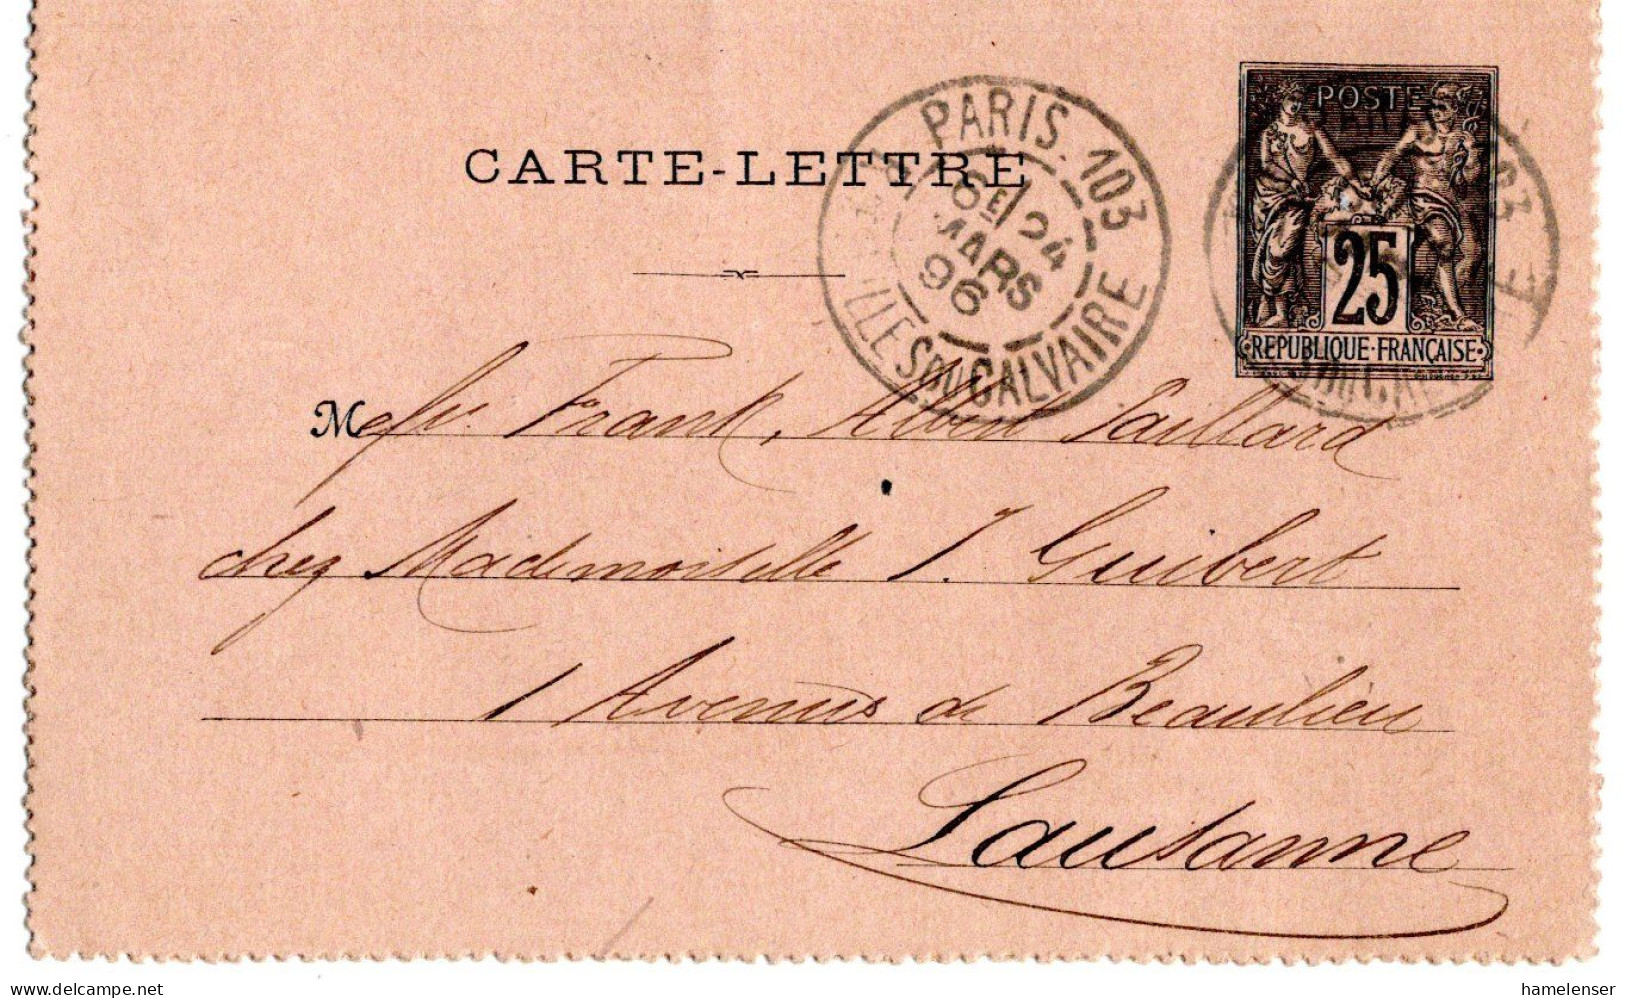 POSTE
CARTE-LETTRE
PARIS. 103
6E 24
MARS
96
FILLES DU CALVAIRE
25
REPUBLIQUE·FRANÇAISE
Messrs. Frank, Albert Paillard
chez Mademoiselle J. Guibert
1 Avenue de Beaulieu
Lausanne
www.delcampe.net
hamelenser